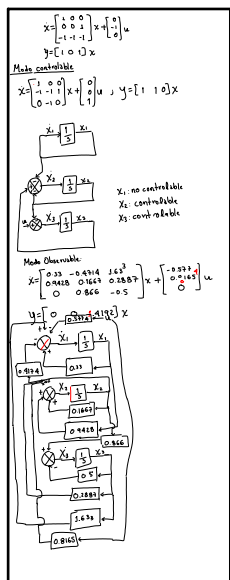 ẋ = [1 0 0; 0 0 1; -1 -1 -1] x + [0; -1; 0] u
y = [1 0 1] x
Modo controlable
ẋ = [1 0 0; -1 -1 1; 0 -1 0] x + [0; 0; 1] u , y = [1 1 0] x
ẋ1 1/s x1
ẋ2 1/s x2
x1: no controlable
x2: controlable
u ẋ3 1/s x3
x3: controlable
Modo Observable:
ẋ = [0.33 -0.4714 1.633; 0.9428 0.1667 0.2887; 0 0.866 -0.5] x + [-0.577; 0.8165; 0] u
y = [0 0 1.4192] x
0.5774 u
ẋ1 1/s x1
0.4174
0.33
ẋ2 1/s x2
0.1667
0.9428
0.866
ẋ3 1/s x3
0.5
0.2887
1.633
0.8165